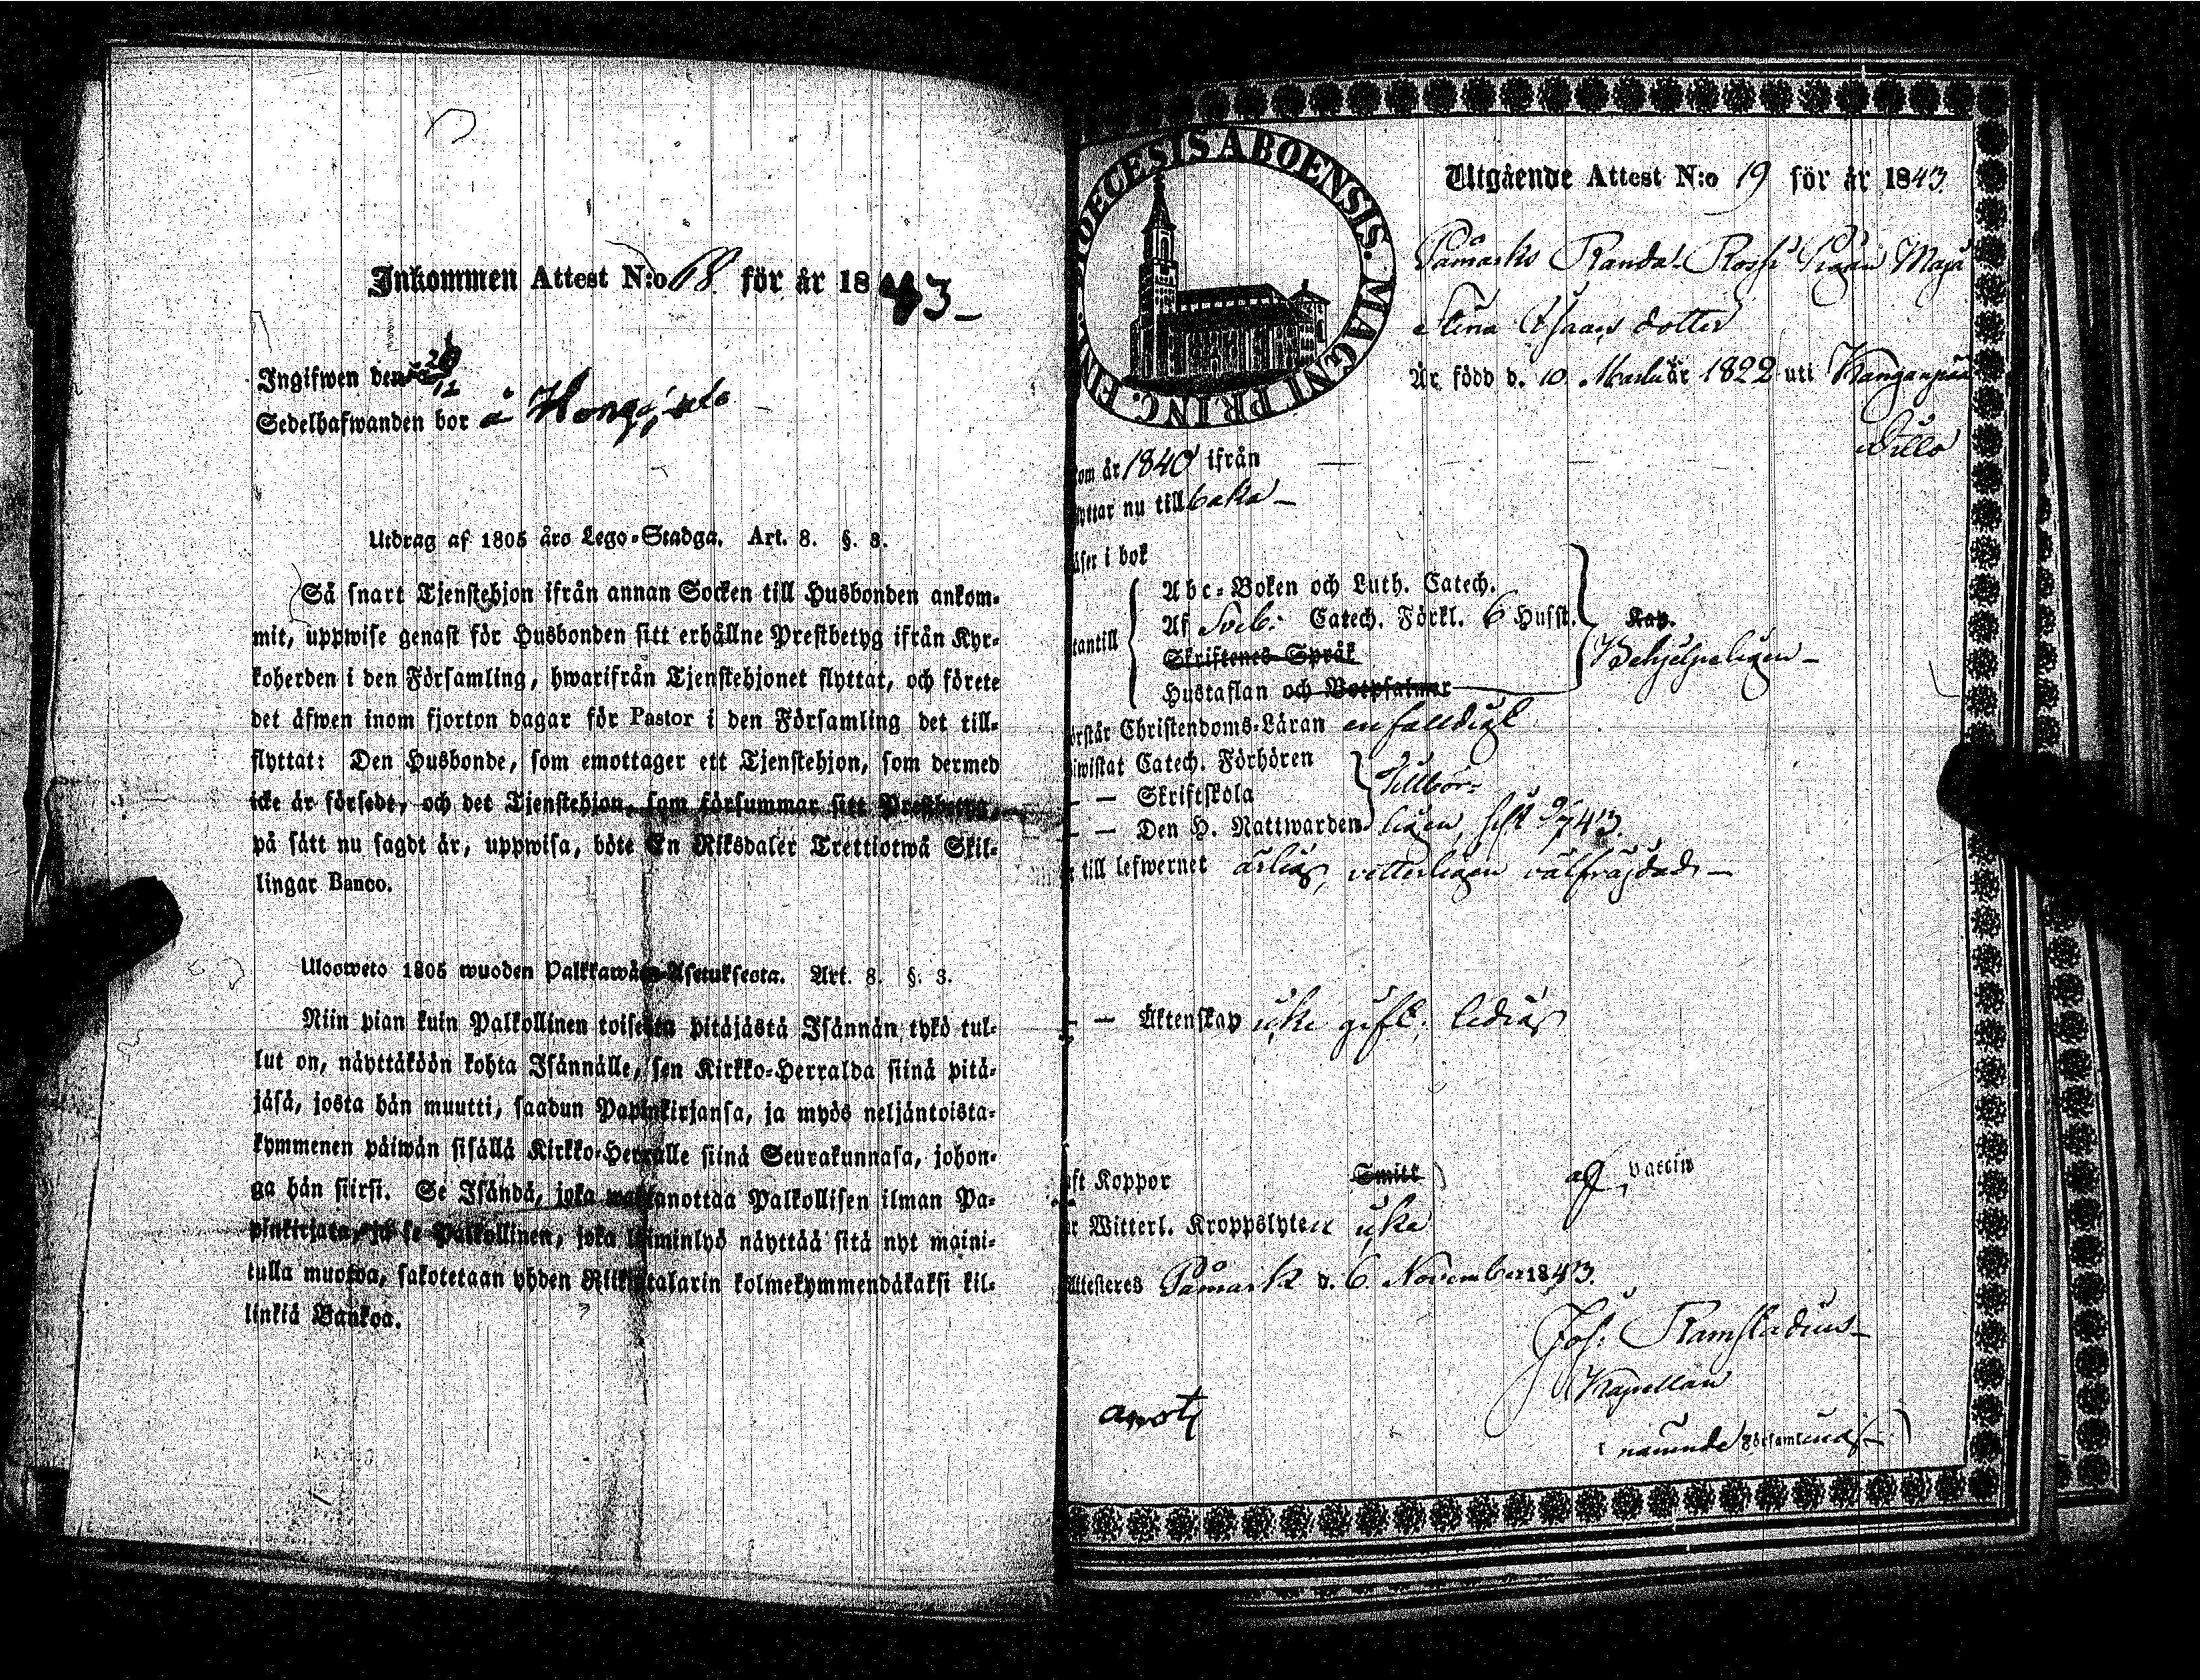 Inkommen Attest N:o 68 för år 1843
Ingifwen den 26/12
Sedelhafwanden bor å
Utdrag af 1805 års Lego-Stadga. Art. 8. §. 3.
Så snart Tjenstehjon ifrån annan Socken till Husbonden ankom-
mit, uppwise genast för Husbonden sitt erhållne Prestbetyg ifrån Kyr-
koherden i den Församling, hwarifrån Tjenstehjonet flyttat, och förete
det äfwen inom fjorton dagar för Pastor i den Församling det till-
flyttat: Den Husbonde, som emottager ett Tjenstehjon, som dermed
icke är försedt, och det Tjenstehjon, som försummar sitt Prestbetyg,
på sätt nu sagdt är, uppwisa, böte En Riksdaler Trettiotwå Skil-
lingar Banco.
Ulosweto 1805 wuoden Palkkawäen-Asetuksesta. Art. 8. §. 3.
Niin pian kuin Palkollinen toisesta pitäjästä Isännän tykö tul-
lut on, näyttäköön kohta Isännälle, sen Kirkko-Herralda siinä pitä-
jäsä, josta hän muutti, saadun Papinkirjansa, ja myös neljäntoista-
kymmenen päiwän sisällä Kirkko-Herralle siinä Seurakunnasa, johon-
ga hän siirsi. Se Isändä, joka wastanottaa Palkollisen ilman Pa-
pinkirjata, ja se Palkollinen, joka laiminlyö näyttää sitä nyt maini-
tulla muotoa, sakotetaan yhden Riikintalarin kolmekymmendäkaksi kil-
linkiä Bankoa.
DIOECESIS ABOENSIS. MAGNI PRINC. FINL.
Utgående Attest N:o 19 för år 1843
Påmarks Randa- Rossi Pigan Maja
Stina Isaacs dotter
Är född d. 10 Martii år 1822 uti Kangaspää
Dills
kom år 1840 ifrån
flyttar nu tillbaka
läser i bok
Abc-Boken och Luth. Catech.
utantill Af Sveb: Catech. Förkl. 6 Husst. Kap.
Skriftenes Språk Behjelpeligen
Hustaflan och Botpsalmer
förstår Christendoms-Läran enfaldigt
biwistat Catech. Förhören
— — Skriftskola Tillbör-
— — Den H. Nattwarden ligen, sist 9/7 43.
är till lefwernet ärlig, vetterligen välfräjdad
— — Äktenskap icke gift, ledig
haft Koppor Smitt af vaccin
är Witterl. Kroppslyten icke
Attesteres Påmark d. 6 November 1843.
Joh: Ramstadius
Kapellan
i nämnde Församling